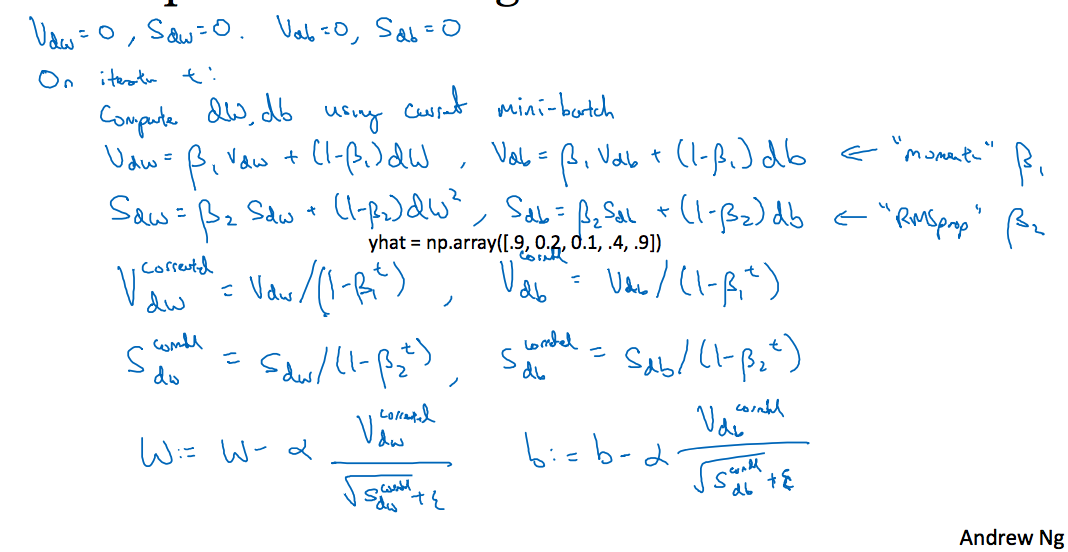 V_dw = 0, S_dw = 0. V_db = 0, S_db = 0
On iteration t:
Compute dW, db using current mini-batch
V_dw = β₁ V_dw + (1-β₁)dW, V_db = β₁ V_db + (1-β₁) db ← "momentum" β₁
S_dw = β₂ S_dw + (1-β₂)dW², S_db = β₂ S_db + (1-β₂) db ← "RMSprop" β₂
yhat = np.array([.9, 0.2, 0.1, .4, .9])
V_dw^corrected = V_dw/(1-β₁^t), V_db^corrected = V_db/(1-β₁^t)
S_dw^corrected = S_dw/(1-β₂^t), S_db^corrected = S_db/(1-β₂^t)
W := W - α V_dw^corrected / (√S_dw^corrected + ε) b := b - α V_db^corrected / (√S_db^corrected + ε)
Andrew Ng